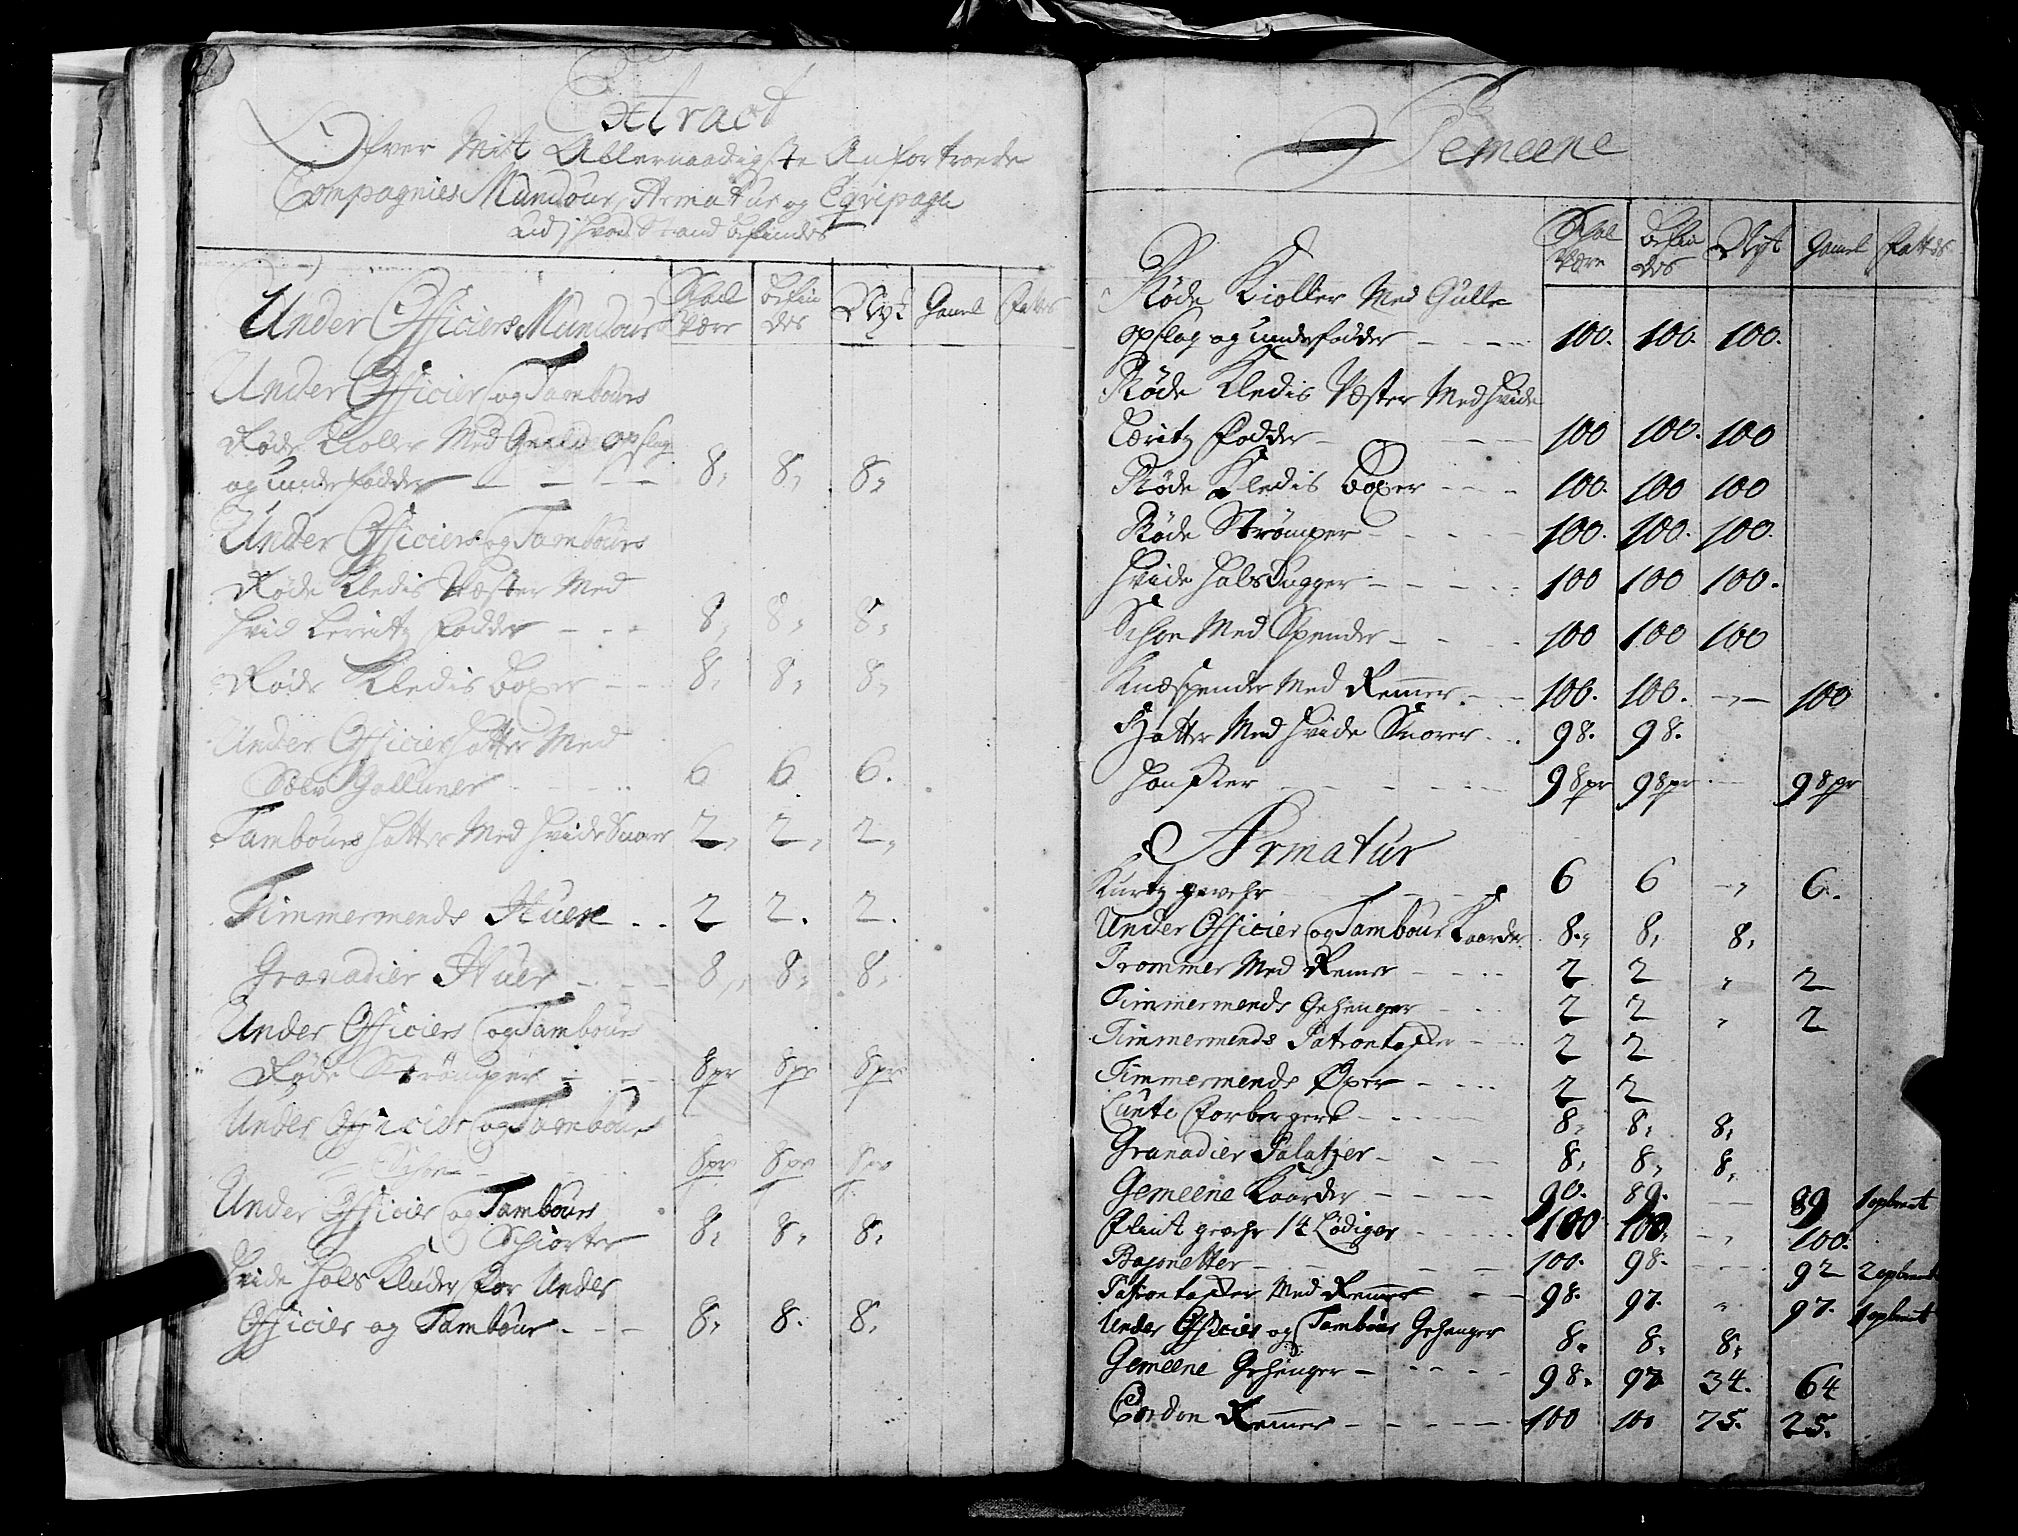 Extract
Ofver Mit Allernaadigste Anfortroede
Compagnies Mundour, Armatur og Eqvipage
Ud j hvad Stand befindes
Under Officiers Mundour Skal være befindes Nyt Gaml fattes
Under Officier og Tambours
Røde Kioller Med Guule opslag
og underfodder - - - 8, 8, 8,
Under Officiers og Tambours
Røde Kledis Væster Med
hvid Lerritz Fodder - - - 8, 8, 8,
Røde Kledis boxer - - 8, 8, 8,
Under Officier hatter Med
Sølv Galluner - - - 6 6 6.
Tambours hatter Med hvide Snorer 2, 2, 2,
Timmermends Huer . . 2 2. 2.
Granadier Huer - - - 8, 8, 8,
Under Officiers og Tambours
Røde Strömper - - - 8 pr 8 pr 8 pr
Under Officier og Tambours
Schoe - - - 8 pr 8 pr 8 pr
Under Officier og Tambours
Schiorter 8, 8, 8,
hvide hals Kluder for Under
Officier og Tambour - - - 8, 8. 8,
Gemeene
Skal være befindes Nyt Gaml fattes
Røde Kioller Med Gulle
opslag og underfodder - - - 100. 100. 100.
Røde Kledis Væster Med hvide
Læritz Fodder - - - 100 100. 100
Røde Kledis boxer - - - 100. 100 100
Røde Strømper - - - 100. 100. 100.
hvide halsdugger - - - 100 100 100.
Schoe Med Spender - - - 100 100 100
Knæspender Med Remmer - - 100. 100. -,- 100
Hatter Med hvide Snorer - . 98. 98.
handsker - - - 98 pr 98 pr - 98 pr
Armatur
Kurtz gevehr - - - 6 6 -, 6.
Under Officier og Tambour Kaarder 8., 8, 8,
Trommer Med Remer - - - 2 2 , 2
Timmermends Gehenger - - - 2 2 , 2
Timmermends Patrontasker - - 2 2
Timmermends Øxer - - - 2 2
Lunte Forbergere - - - 8, 8, 8,
Granadier Palatzer - - - 8, 8, 8,
Gemeene Kaarder - - - 90. 89. - 89 1
Flint gevehr 14 Lødiger - - - 100 100, -, 100.
Bajonetter - - - 100. 98. - 92 2
Patrontasker Med Remmer - - 98. 97. , 97. 1
Under Officier og Tambour Gehenger 8, 8, 8,
Gemeene Gehenger - - - 98. 97 34. 64
Cordon Remmer - - - 100 100 75. 25.